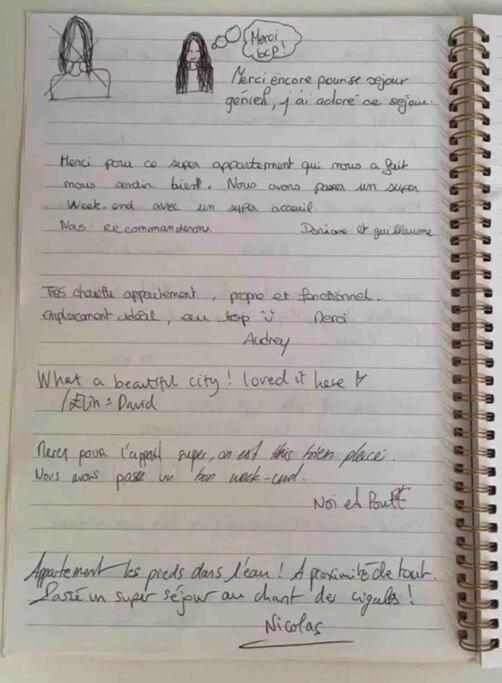 Merci
bcp!
Merci encore pour se sejour
génial, j'ai adoré ce sejour.
Merci pour ce super appartement qui nous a fait
nous sentir bien. Nous avons passer un super
Week-end avec un super acceuil.
Nous Recommanderons. Doriane et guillaume
Très chouette appartement, propre et fonctionnel.
emplacement idéal, au top Merci
Audrey
What a beautiful city! loved it here
/Elin & David
Merci pour l'appart super, on est très bien placé.
Nous avons passé un bon week-end.
Noi et
Appartement les pieds dans l'eau! A proximité de tout.
Passé un super séjour au chant des cigales!
Nicolas